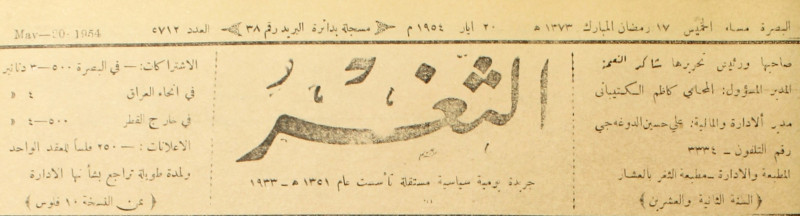 البصرة مساء الخميس ١٧ رمضان المبارك ١٣٧٣ هـ ٢٠ ايار ١٩٥٤ م مسجلة بدائرة البريد رقم ٣٨ العدد ٥٧١٢ May-20-1954
صاحبها ورئيس تحريرها شاكر النعمة
المدير المسؤول: المحامي كاظم الكشيباني
مدير الادارة والمالية: علي حسين الدوغه جي
رقم التلفون - ٣٣٣٤
المطبعة والادارة - مطبعة الثغر بالعشار
( السنة الثانية والعشرين )
الثغر
جريدة يومية سياسية مستقلة تأسست عام ١٣٥١ هـ - ١٩٣٣
الاشتراكات: - في البصرة ٥٠٠-٣ دنانير
في انحاء العراق ٤ »
في خارج القطر ٥٠٠-٤ »
الاعلانات: - ٢٥٠ فلساً للعقد الواحد
ولمدة طويلة تراجع بشأنها الادارة
( ثمن النسخة ١٠ فلوس )